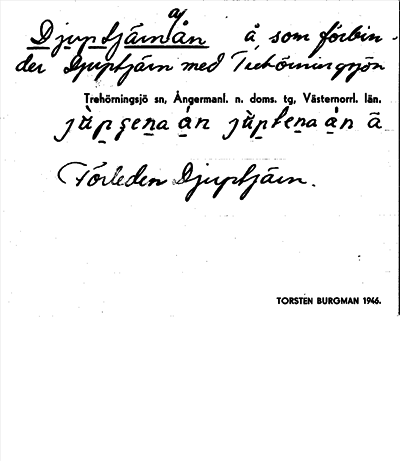 Djuptjärnaån å, som förbin-
der Djuptjärn med Trehörningsjön
Trehörningsjö sn, Ångermanl. n. doms. tg, Västernorrl. län.
Förleden Djuptjärn.
TORSTEN BURGMAN 1946.